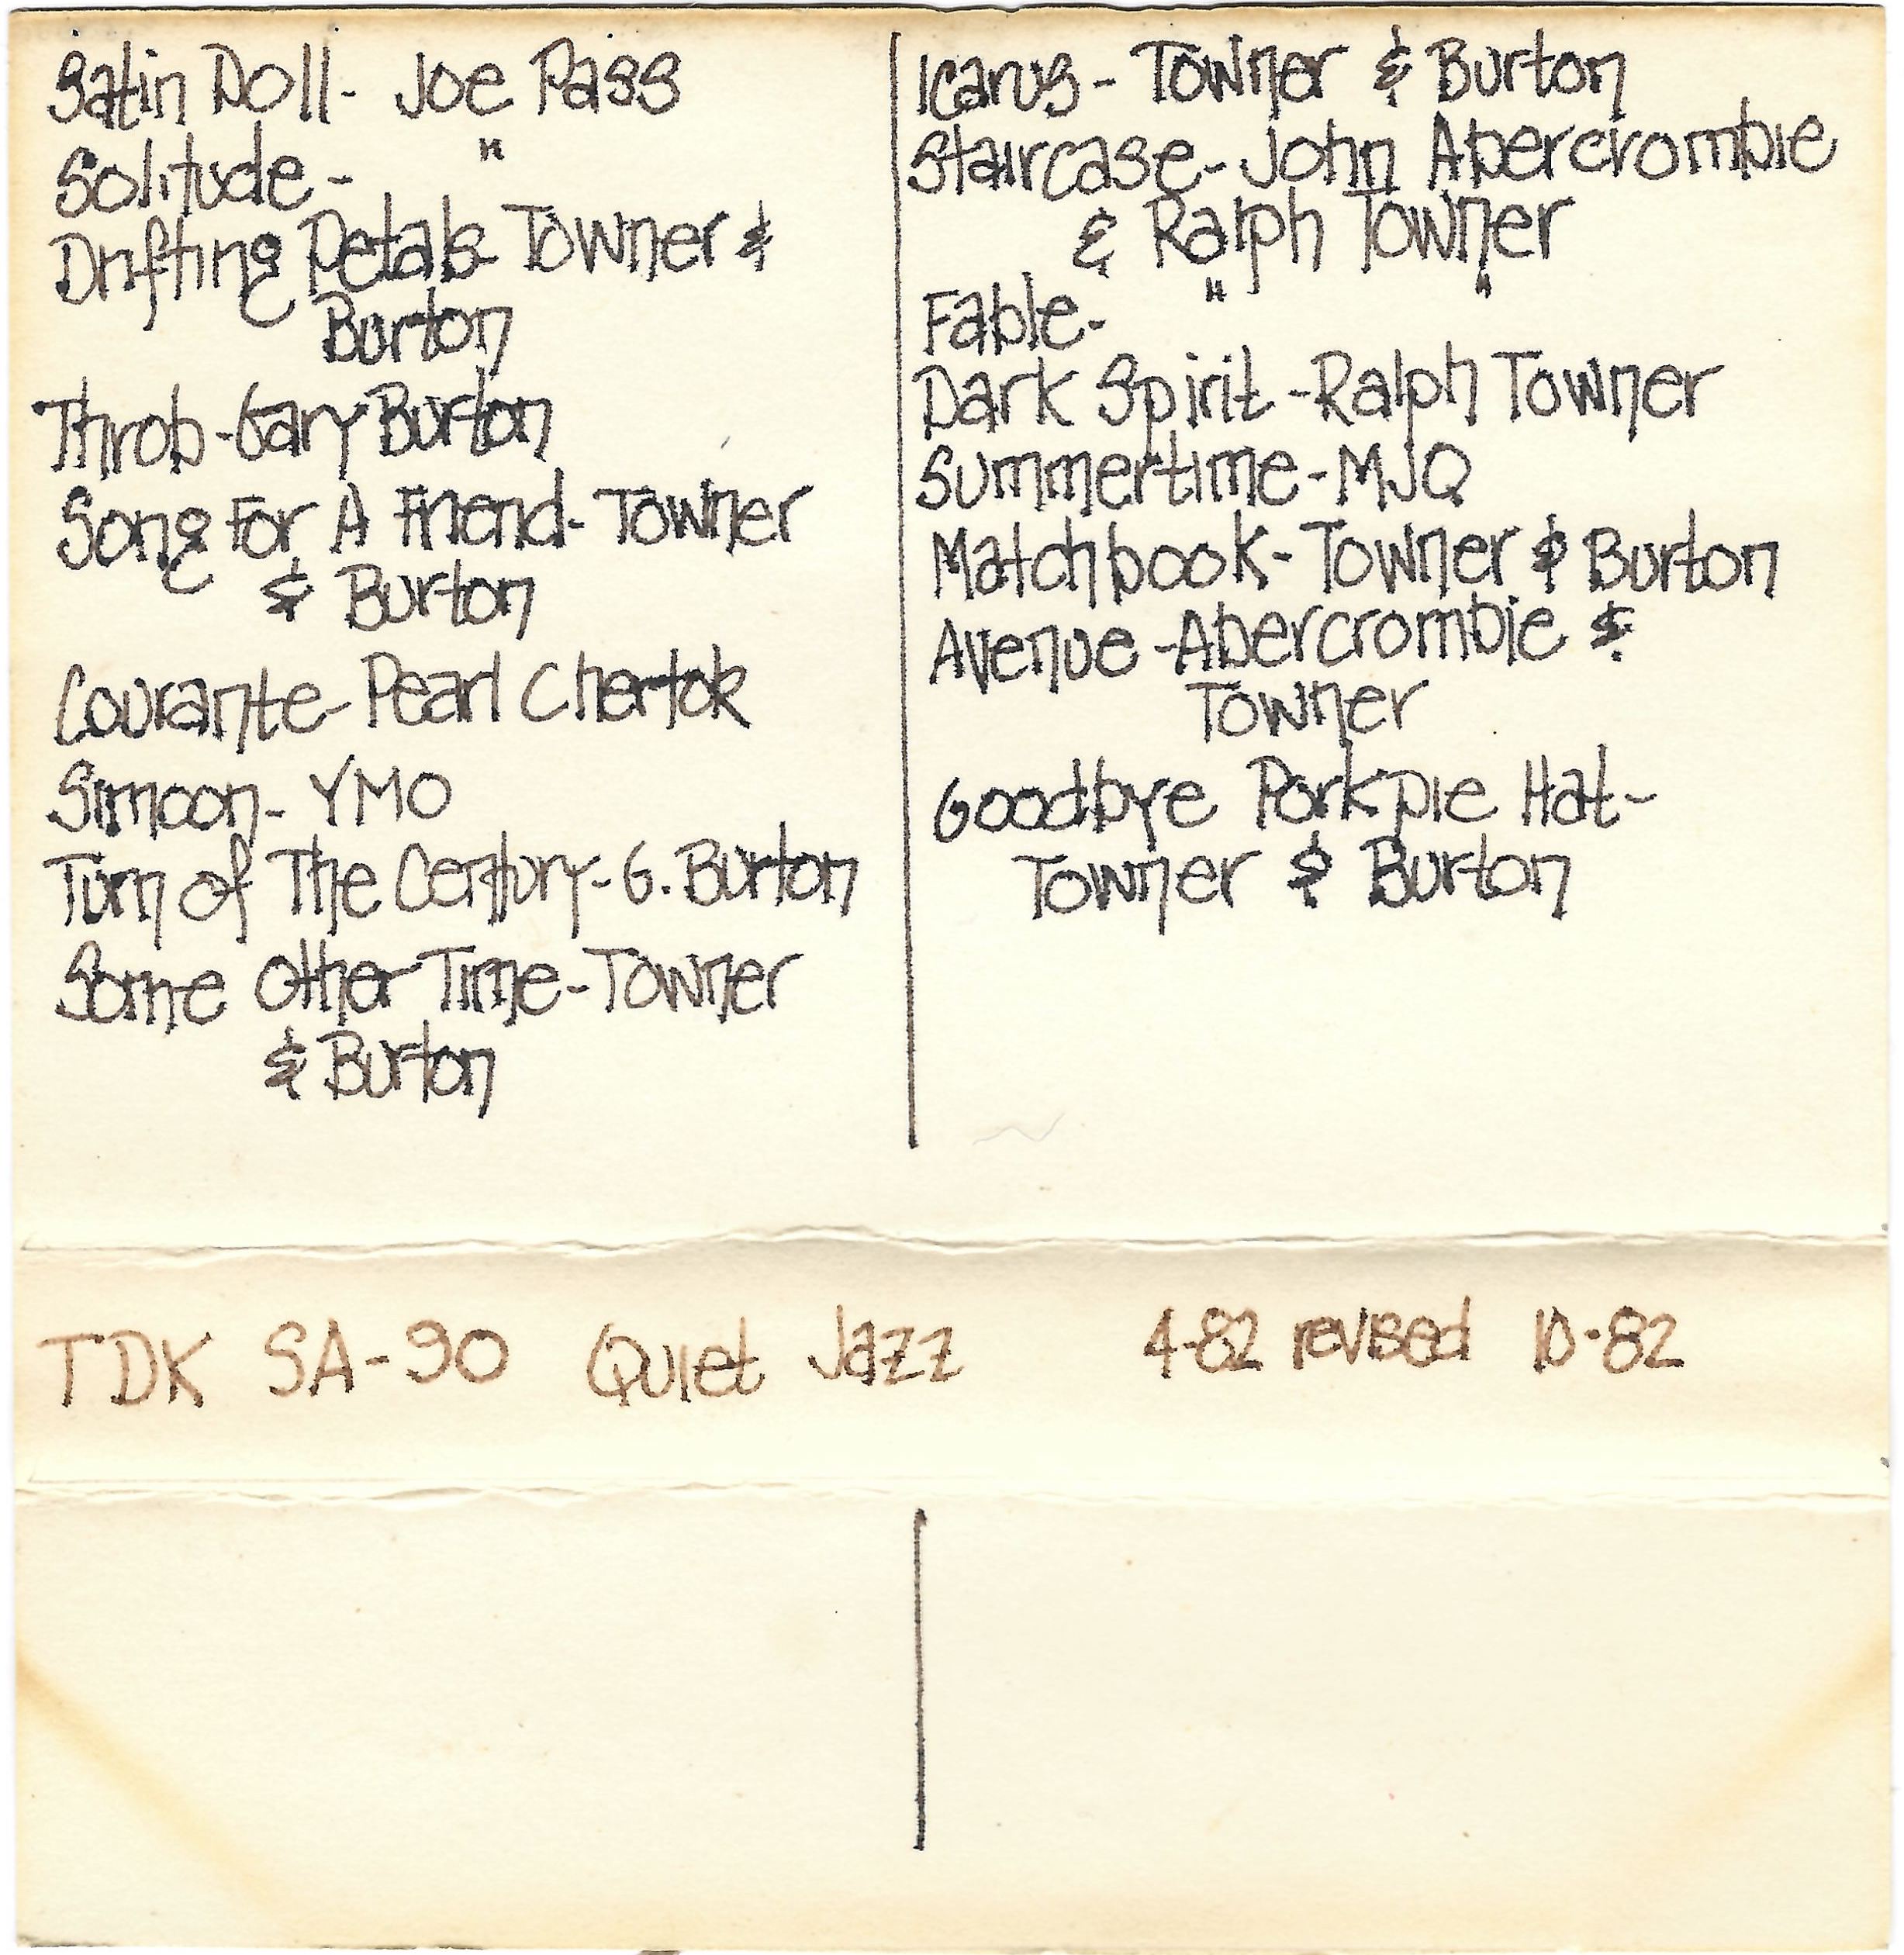 Satin Doll- Joe Pass
Solitude- "
Drifting Petals- Towner &
Burton
Throb-Gary Burton
Song For A Friend- Towner
& Burton
Courante- Pearl Chertok
Simoon- YMO
Turn of The Century-G. Burton
Some Other Time-Towner
& Burton
Icarus- Towner & Burton
Staircase- John Abercrombie
& Ralph Towner
Fable- " "
Dark Spirit-Ralph Towner
Summertime-MJQ
Matchbook- Towner & Burton
Avenue-Abercrombie &
Towner
Goodbye Porkpie Hat-
Towner & Burton
TDK SA-90 Quiet Jazz 4-82 revised 10-82